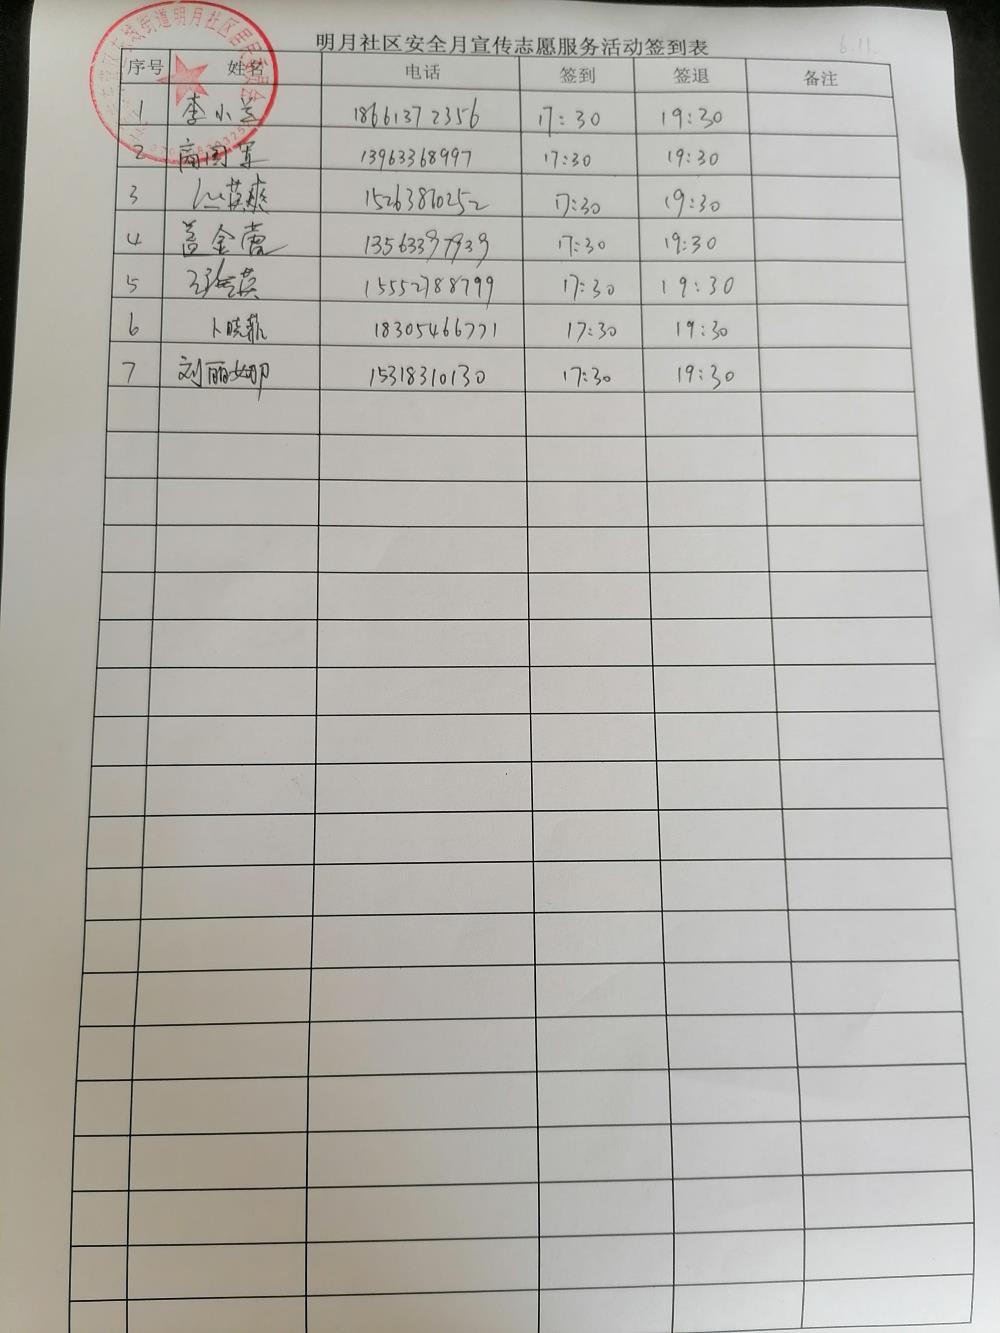 明月社区安全月宣传志愿服务活动签到表
6.11.
序号 姓名 电话 签到 签退 备注
1 李小兰 18661372356 17:30 19:30
2 商国军 13963368997 17:30 19:30
3 15263870252 17:30 19:30
4 盖金霞 13563397939 17:30 19:30
5 15552788799 17:30 19:30
6 卜晓菲 18305466771 17:30 19:30
7 刘丽娜 15318310130 17:30 19:30
街道明月社区居民委员会